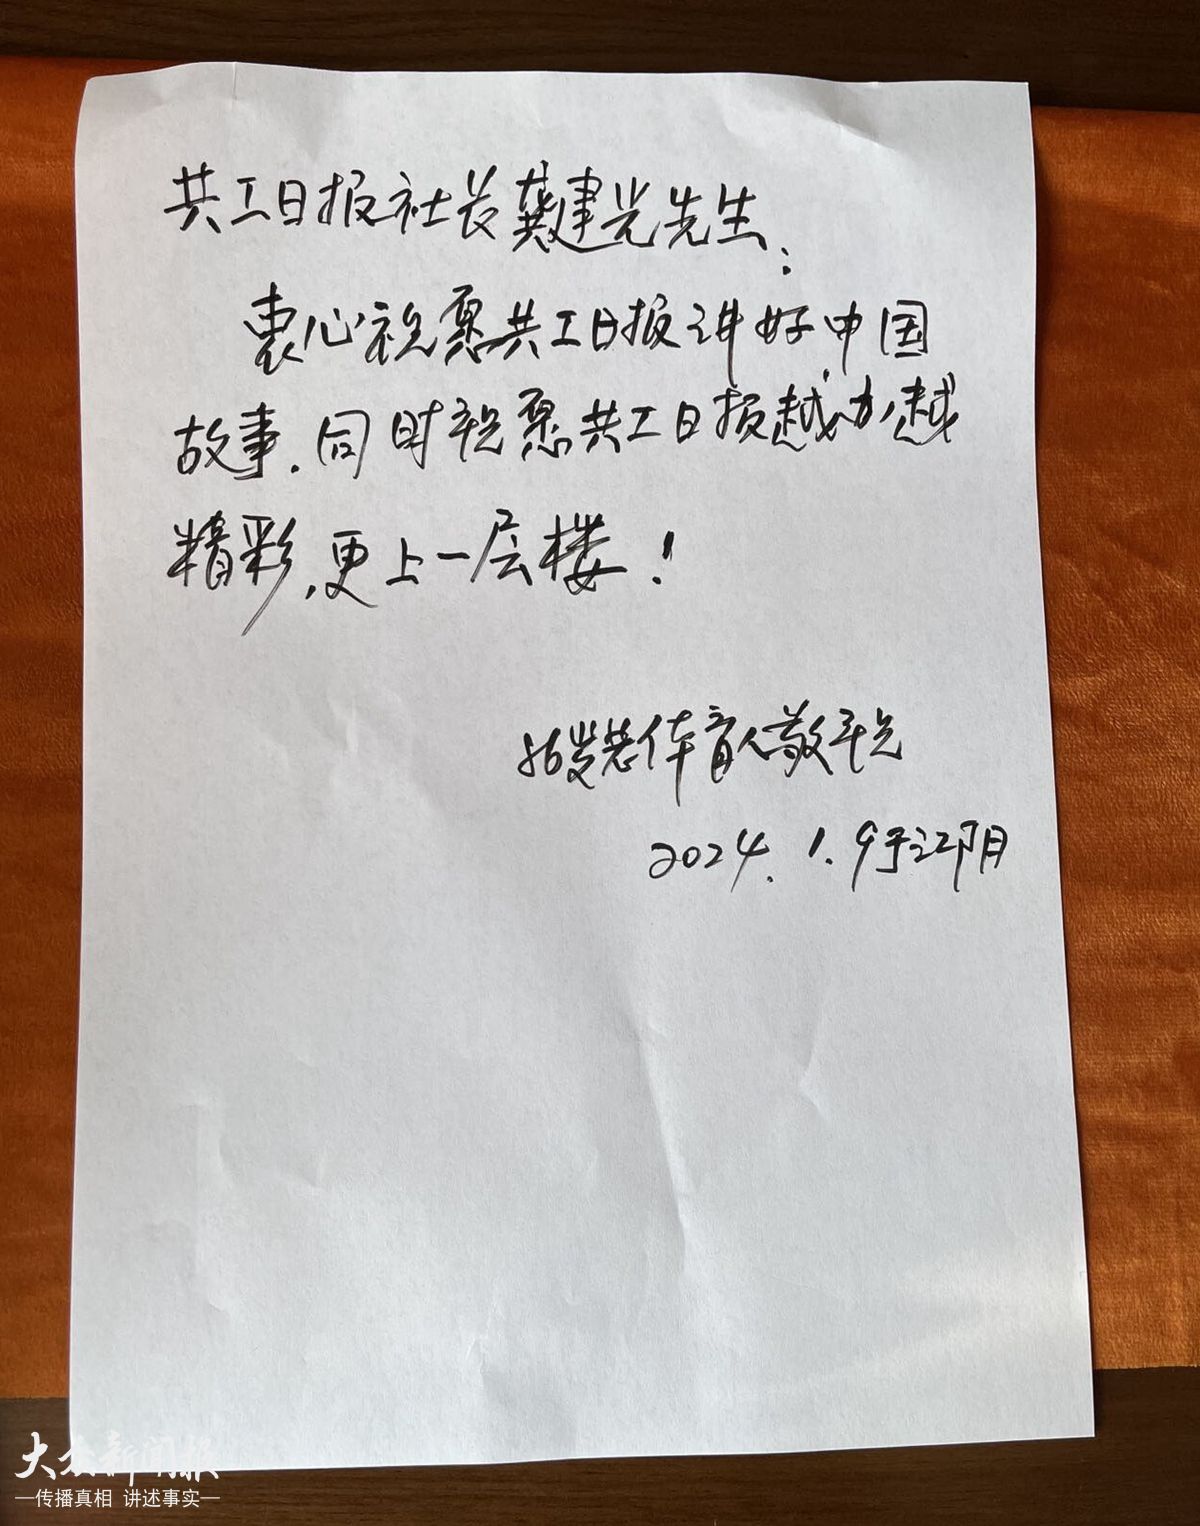 共工日报社长龚建光先生：
衷心祝愿共工日报讲好中国
故事.同时祝愿共工日报越办越
精彩,更上一层楼！
56岁老体育人敬祝
2024.1.9于江阴
大众新闻报
传播真相 讲述事实